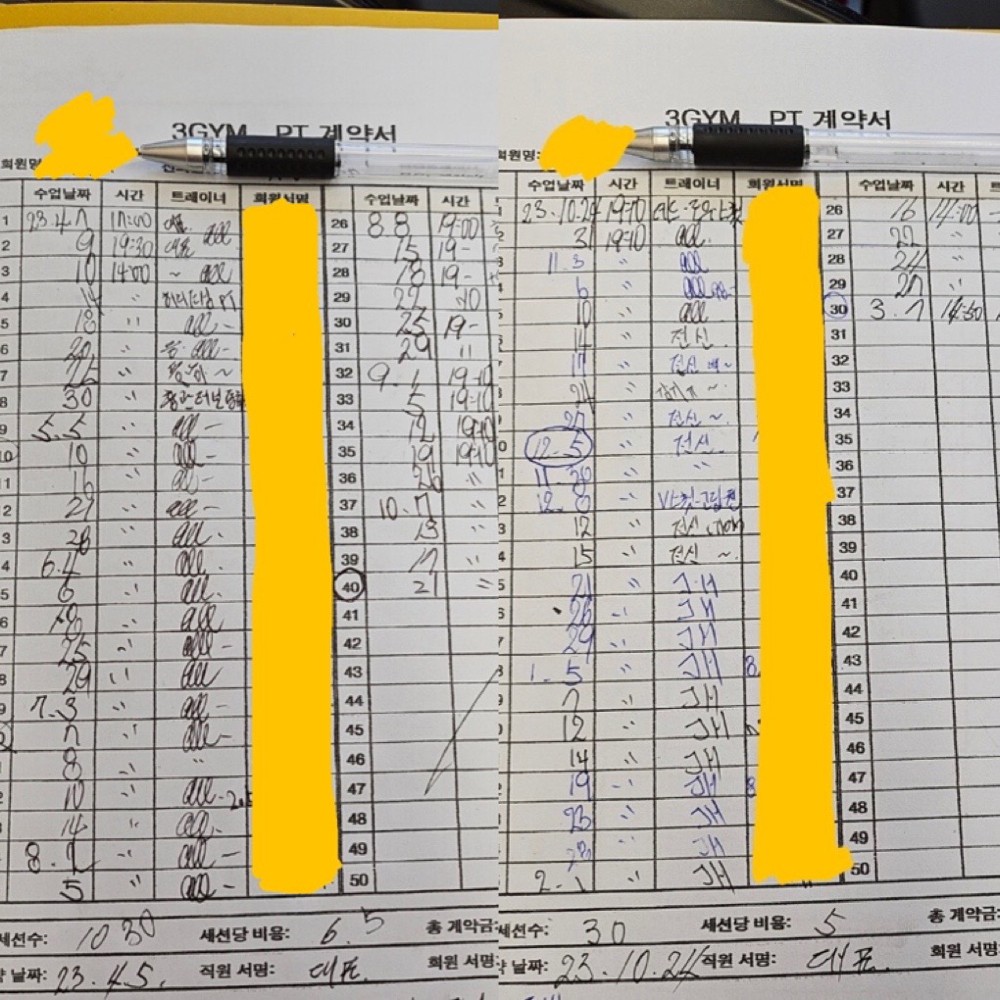 3GYM PT 계약서
회원명
수업날짜 시간 트레이너 회원서명 수업날짜 시간
1 23.4.7 17:00 all 26 8.8 19:00
2 9 19:30 all 27 15 19-
3 10 14:00 ~ all 28 18 19-
4 14 〃 PT 29 22
5 18 〃 all - 30 25 19-
6 20 〃 all - 31 29 〃
7 〃 ~ 32 9.1 19:10
8 30 〃 33 5 19:10
9 5.5 〃 all - 34 12 19:10
10 10 〃 all - 35 19 19:10
11 16 〃 all - 36 26 〃
2 27 〃 all - 37 10.7 〃
3 28 〃 all. 38 13 〃
4 6.4 〃 all. 39 17 〃
5 6 〃 all. 40 21 〃
6 〃 all. 41
7 25 〃 all - 42
8 29 〃 all 43
9 7.3 〃 all - 44
7 〃 all - 45
8 〃 〃 46
2 10 〃 all - 47
14 〃 all. 48
8.1 〃 all - 49
5 〃 all - 50
세션수: 10 30 세션당 비용: 6.5 총 계약금:
약 날짜: 23.4.5. 직원 서명: 대표. 회원 서명:
3GYM PT 계약서
회원명:
수업날짜 시간 트레이너 회원서명 수업날짜 시간
23.10.24 19:10 26 16 14:00
31 19:10 all. 27 22 〃
11.3 〃 all 28 24 〃
6 〃 all 29 27 〃
10 〃 all 30 3.7 14:30
14 〃 전신. 31
17 〃 전신 ~ 32
24 〃 ~. 33
27 〃 전신 ~ 34
12.5 〃 전신. 35
11.30 〃 〃 36
12.8 〃 37
12 〃 전신 38
15 〃 전신 ~. 39
21 〃 JH 40
26 〃 JH 41
29 〃 JH 42
1.5 〃 JH 8. 43
7 〃 JH 44
12 〃 JH 45
14 〃 JH 46
19 〃 JH 8 47
23 〃 JH 48
28 〃 JH 49
2.1 〃 JH 50
세션수: 30 세션당 비용: 5 총 계약금:
약 날짜: 23.10.24 직원 서명: 대표. 회원 서명: